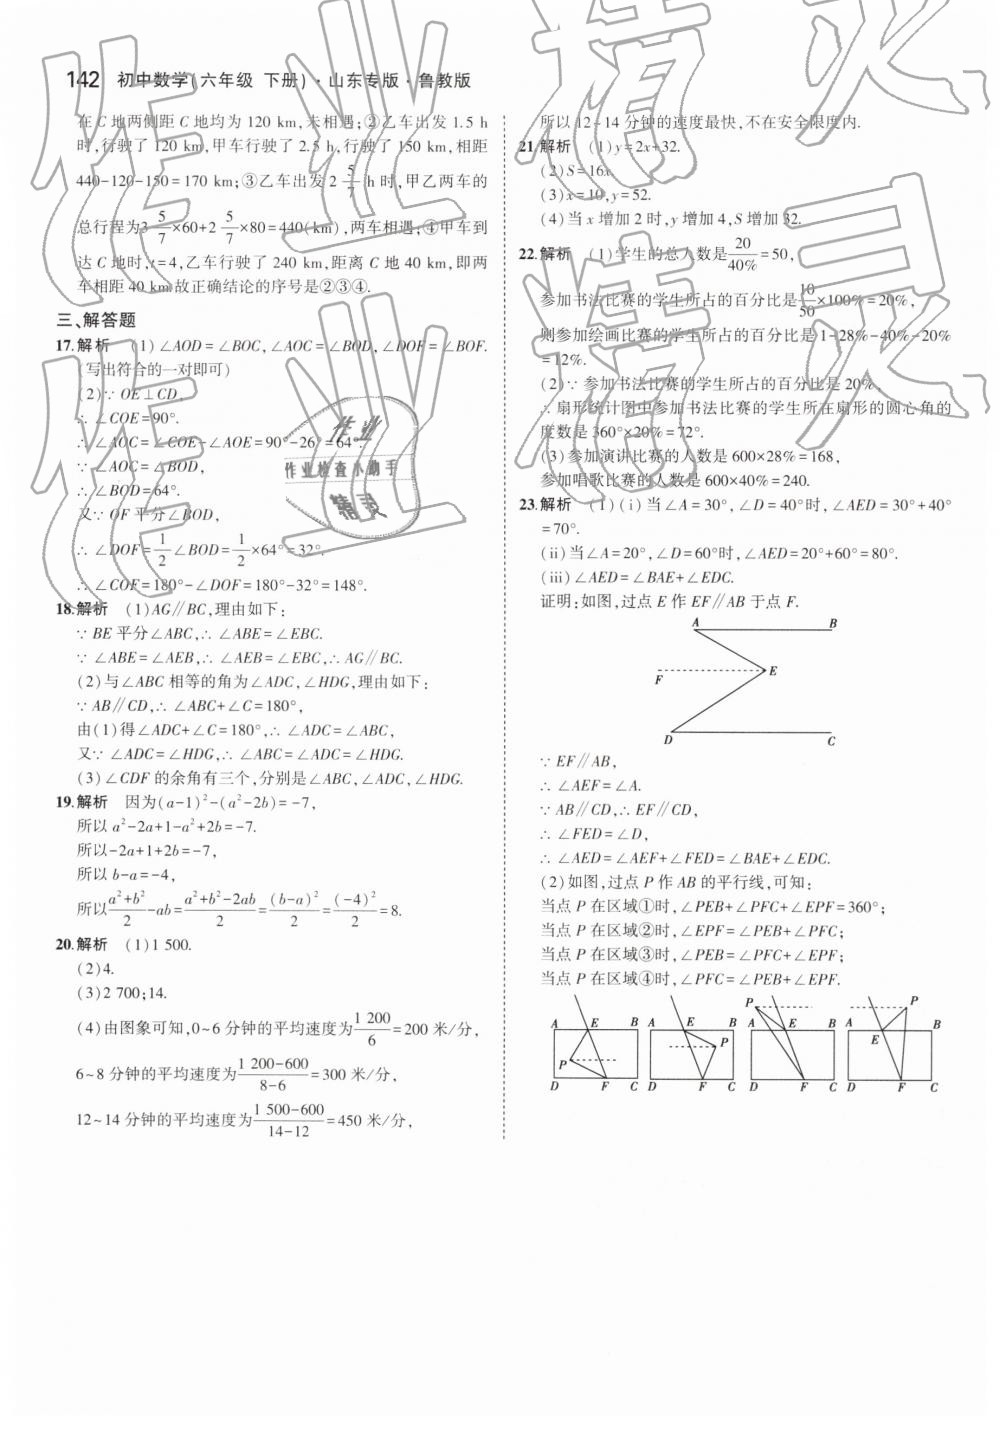 142 初中数学(六年级 下册)·山东专版·鲁教版
在 C 地两侧距 C 地均为 120 km,未相遇;②乙车出发 1.5 h
时,行驶了 120 km,甲车行驶了 2.5 h,行驶了 150 km,相距
440-120-150=170 km;③乙车出发 2 5/7 h 时,甲乙两车的
总行程为3 5/7 ×60+2 5/7 ×80=440(km),两车相遇;④甲车到
达 C 地时,t=4,乙车行驶了 240 km,距离 C 地 40 km,即两
车相距 40 km.故正确结论的序号是②③④.
三、解答题
17.解析 (1)∠AOD=∠BOC,∠AOC=∠BOD,∠DOF=∠BOF.
(写出符合的一对即可)
(2)∵ OE⊥CD,
∴ ∠COE=90°.
∴ ∠AOC=∠COE-∠AOE=90°-26°=64°.
∵ ∠AOC=∠BOD,
∴ ∠BOD=64°.
又∵ OF 平分∠BOD,
∴ ∠DOF=1/2∠BOD=1/2×64°=32°.
∴ ∠COF=180°-∠DOF=180°-32°=148°.
18.解析 (1)AG∥BC,理由如下:
∵ BE 平分∠ABC,∴ ∠ABE=∠EBC.
∵ ∠ABE=∠AEB,∴ ∠AEB=∠EBC,∴ AG∥BC.
(2)与∠ABC 相等的角为∠ADC,∠HDG,理由如下:
∵ AB∥CD,∴ ∠ABC+∠C=180°,
由(1)得∠ADC+∠C=180°,∴ ∠ADC=∠ABC,
又∵ ∠ADC=∠HDG,∴ ∠ABC=∠ADC=∠HDG.
(3)∠CDF 的余角有三个,分别是∠ABC,∠ADC,∠HDG.
19.解析 因为(a-1)²-(a²-2b)=-7,
所以 a²-2a+1-a²+2b=-7.
所以-2a+1+2b=-7,
所以 b-a=-4,
所以(a²+b²)/2-ab=(a²+b²-2ab)/2=(b-a)²/2=(-4)²/2=8.
20.解析 (1)1 500.
(2)4.
(3)2 700;14.
(4)由图象可知,0~6 分钟的平均速度为1 200/6=200 米/分,
6~8 分钟的平均速度为(1 200-600)/(8-6)=300 米/分,
12~14 分钟的平均速度为(1 500-600)/(14-12)=450 米/分,
所以 12~14 分钟的速度最快,不在安全限度内.
21.解析 (1)y=2x+32.
(2)S=16x.
(3)x=10,y=52.
(4)当 x 增加 2 时,y 增加 4,S 增加 32.
22.解析 (1)学生的总人数是20/40%=50,
参加书法比赛的学生所占的百分比是10/50×100%=20%,
则参加绘画比赛的学生所占的百分比是 1-28%-40%-20%
=12%.
(2)∵ 参加书法比赛的学生所占的百分比是 20%,
∴ 扇形统计图中参加书法比赛的学生所在扇形的圆心角的
度数是 360°×20%=72°.
(3)参加演讲比赛的人数是 600×28%=168,
参加唱歌比赛的人数是 600×40%=240.
23.解析 (1)(ⅰ)当∠A=30°,∠D=40°时,∠AED=30°+40°
=70°.
(ⅱ)当∠A=20°,∠D=60°时,∠AED=20°+60°=80°.
(ⅲ)∠AED=∠BAE+∠EDC.
证明:如图,过点 E 作 EF∥AB 于点 F.
A B
F E
D C
∵ EF∥AB,
∴ ∠AEF=∠A.
∵ AB∥CD,∴ EF∥CD,
∴ ∠FED=∠D,
∴ ∠AED=∠AEF+∠FED=∠BAE+∠EDC.
(2)如图,过点 P 作 AB 的平行线,可知:
当点 P 在区域①时,∠PEB+∠PFC+∠EPF=360°;
当点 P 在区域②时,∠EPF=∠PEB+∠PFC;
当点 P 在区域③时,∠PEB=∠PFC+∠EPF;
当点 P 在区域④时,∠PFC=∠PEB+∠EPF.
A E B P D F C
A E B P D F C
P A E B D F C
P A E B D F C
作业
作业检查小助手
精灵
作业精灵
作业精灵